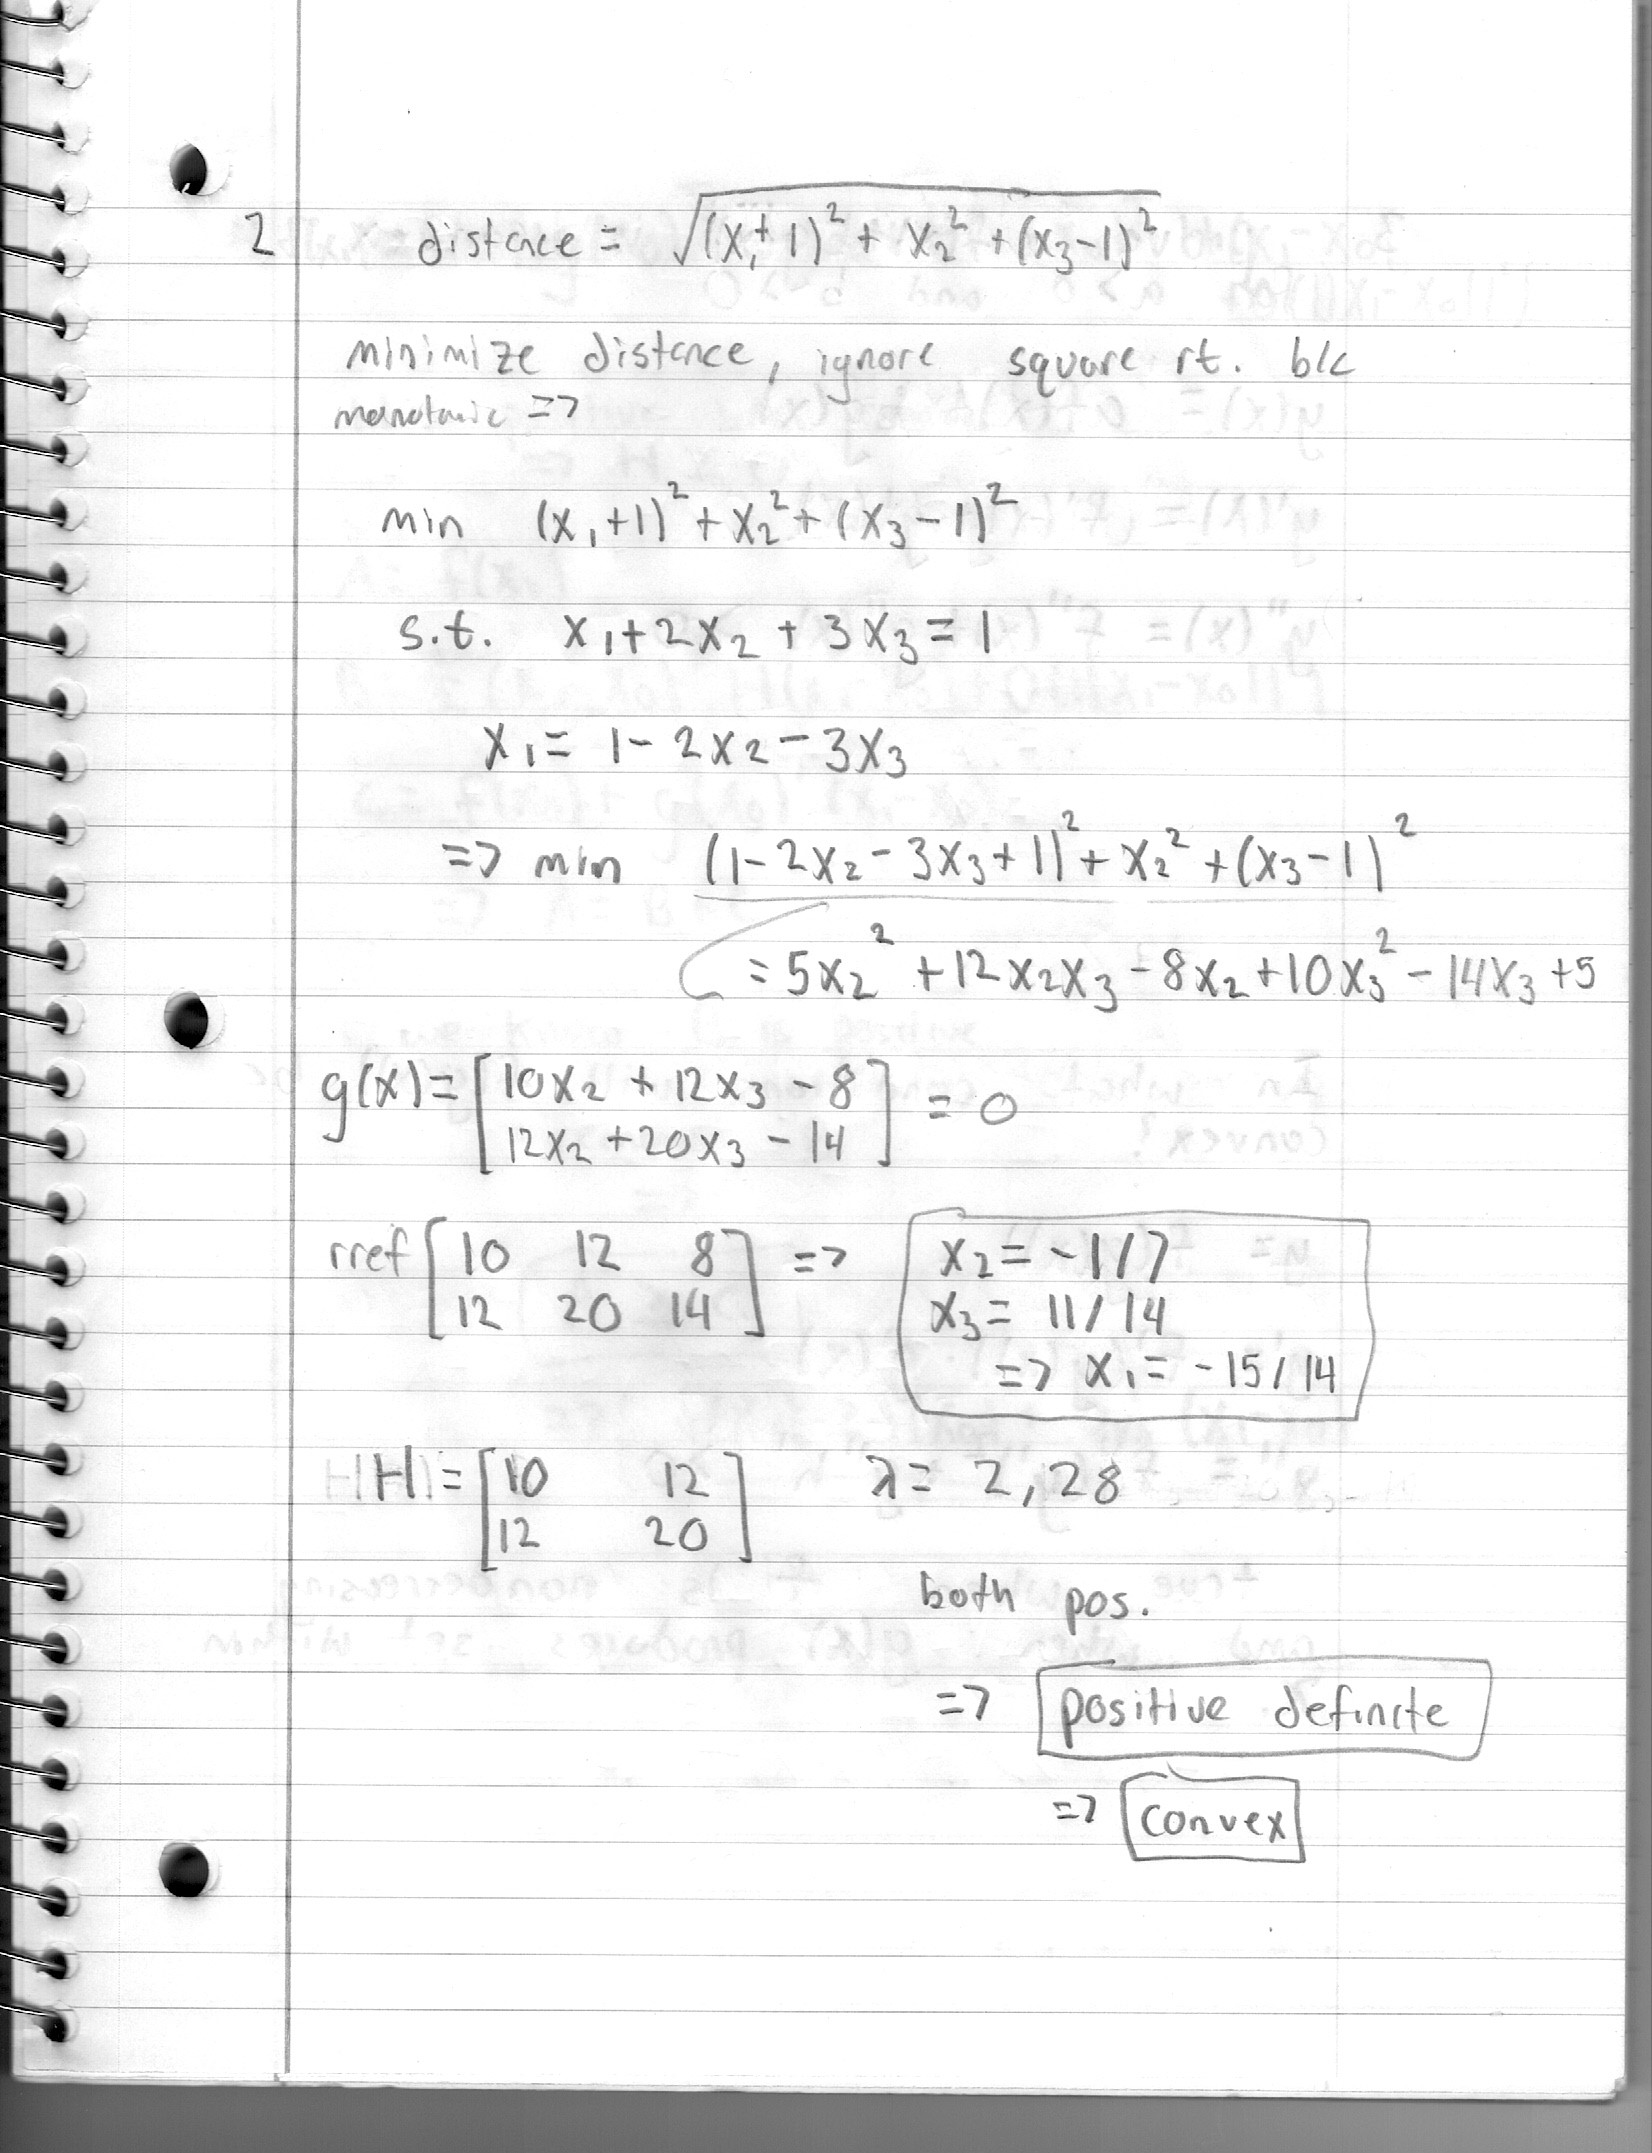 2 distance = √(x₁+1)² + x₂² + (x₃-1)²
minimize distance, ignore square rt. b/c
monotonic =>
min (x₁+1)² + x₂² + (x₃-1)²
s.t. x₁+2x₂ + 3x₃ = 1
x₁ = 1-2x₂-3x₃
=> min (1-2x₂-3x₃+1)² + x₂² + (x₃-1)²
= 5x₂² + 12x₂x₃ - 8x₂ + 10x₃² - 14x₃ + 5
g(x) = [10x₂ + 12x₃ - 8
12x₂ + 20x₃ - 14] = 0
rref [10 12 8
12 20 14] => x₂ = -1/7
x₃ = 11/14
=> x₁ = -15/14
H = [10 12
12 20] λ = 2, 28
both pos.
=> positive definite
=> convex